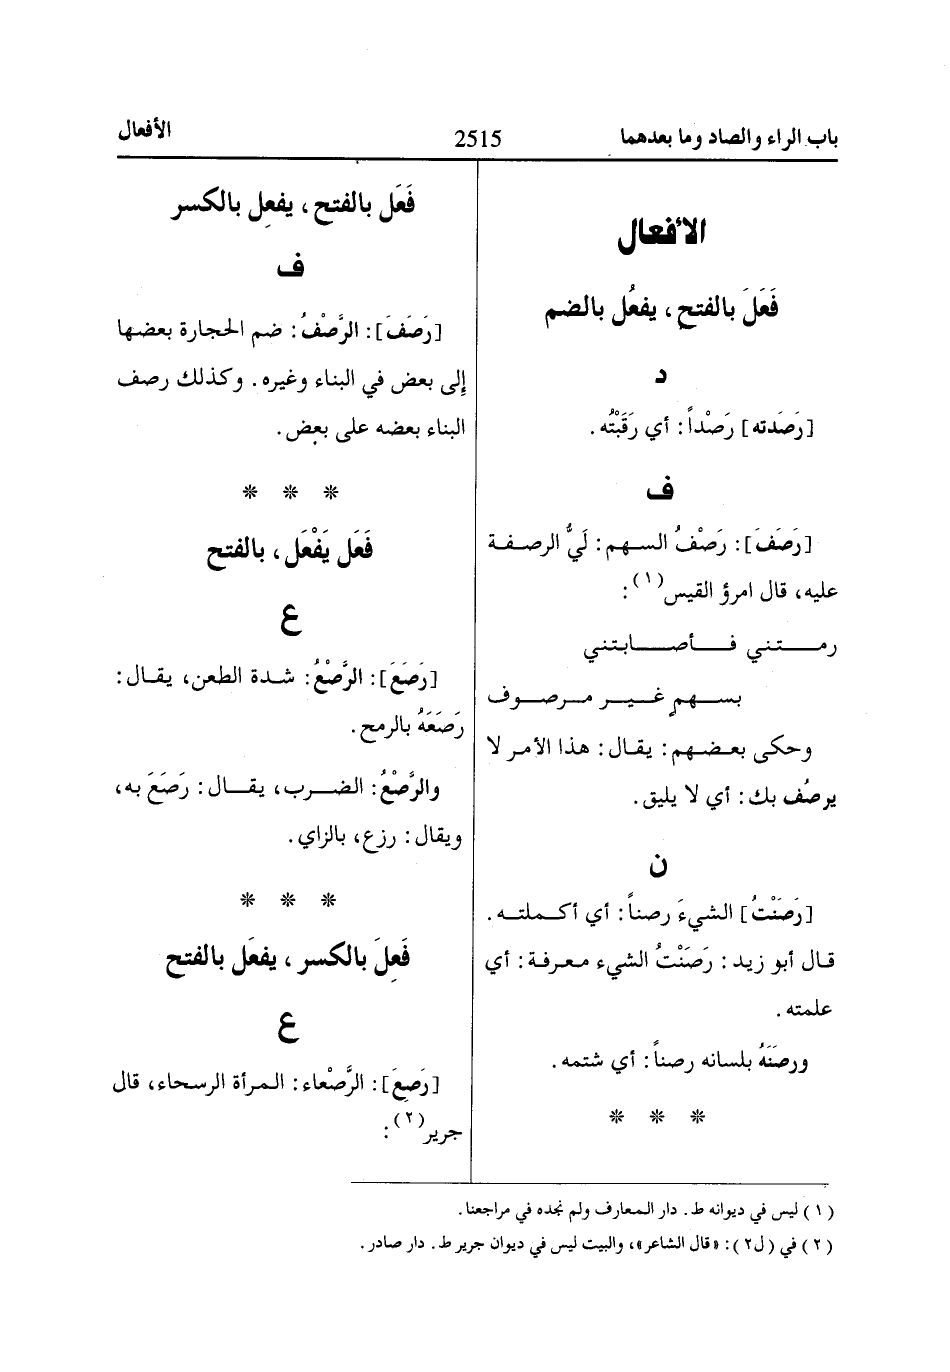 باب الراء والصاد وما بعدهما 2515 الأفعال
الأفعال
فَعَلَ بالفتح، يفعُل بالضم
د
[رَصَدته] رَصْداً: أي رَقَبْتُه.
ف
[رَصَفَ]: رَصْفُ السهم: لَيُّ الرصفة
عليه، قال امرؤ القيس(١):
رمتني فأصابتني
بسهمٍ غير مرصوف
وحكى بعضهم: يقال: هذا الأمر لا
يرصُف بك: أي لا يليق.
ن
[رَصَنْتُ] الشيءَ رصناً: أي أكملته.
قال أبو زيد: رَصَنْتُ الشيء معرفة: أي
علمته.
ورصَنَهُ بلسانه رصناً: أي شتمه.
* * *
فَعَل بالفتح، يفعِل بالكسر
ف
[رَصَفَ]: الرَّصْفُ: ضم الحجارة بعضها
إلى بعض في البناء وغيره. وكذلك رصف
البناء بعضه على بعض.
* * *
فَعَل يَفْعَل، بالفتح
ع
[رَصَعَ]: الرَّصْعُ: شدة الطعن، يقال:
رَصَعَهُ بالرمح.
والرَّصْعُ: الضرب، يقال: رَصَعَ به،
ويقال: رزع، بالزاي.
* * *
فَعِلَ بالكسر، يفعَل بالفتح
ع
[رَصِعَ]: الرَّصْعاء: المرأة الرسحاء، قال
جرير(٢):
(١) ليس في ديوانه ط. دار المعارف ولم نجده في مراجعنا.
(٢) في (ل٢): «قال الشاعر»، والبيت ليس في ديوان جرير ط. دار صادر.